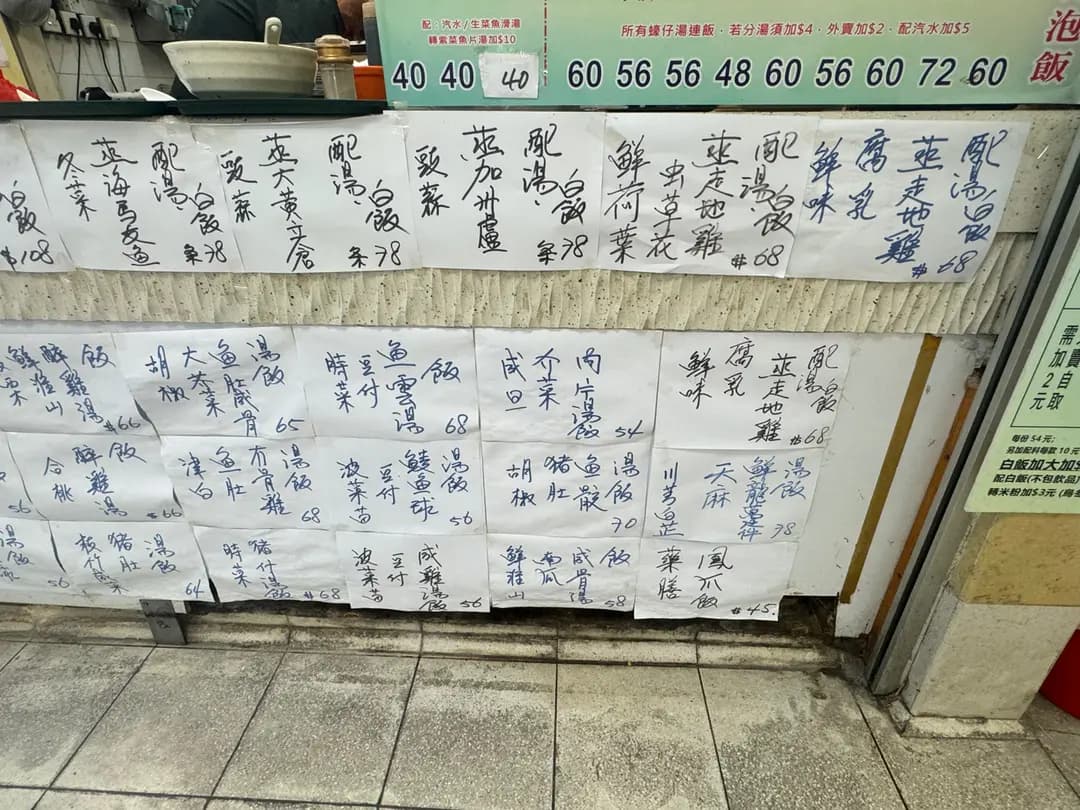 配：汽水/生菜魚滑湯
轉紫菜魚片湯加$10
所有蠔仔湯連飯﹐若分湯須加$4﹐外賣加$2﹐配汽水加$5
泡飯
40 40 40 60 56 56 48 60 56 60 72 60
白飯
$108
配湯、白飯
蒸海馬友魚
冬菜
条38
配湯、白飯
蒸大黃立倉
豉蒜
条38
配湯、白飯
蒸加州鱸
豉蒜
条38
配湯、白飯
蒸走地雞
虫草花
鮮荷葉
$68
配湯白飯
蒸走地雞
腐乳
鮮味
$68
飯
醉雞湯
鮮淮山
$66
湯飯
魚肚腍骨
大芥菜
胡椒
65
飯
魚雲湯
豆付
時菜
68
肉片湯飯
芥菜
咸旦
54
配湯白飯
蒸走地雞
腐乳
鮮味
$68
56
飯
醉雞湯
合桃
$66
湯飯
魚肚
津白
68
湯飯
鯪魚球
豆付
波菜苗
56
湯飯
魚
豬肚
胡椒
70
湯飯
天麻
川芎白芷
78
湯
56
湯飯
豬肚
枝竹
64
豬什湯飯
時菜
$68
咸雞湯飯
豆付
波菜苗
56
飯
咸骨湯
南瓜
鮮淮山
58
鳳爪飯
藥膳
$45.
需
加
2
元
自取
每份 54 元;
另加配料每款 10 元
白飯加大加$
配白飯(不包飲品)
轉米粉加$3元